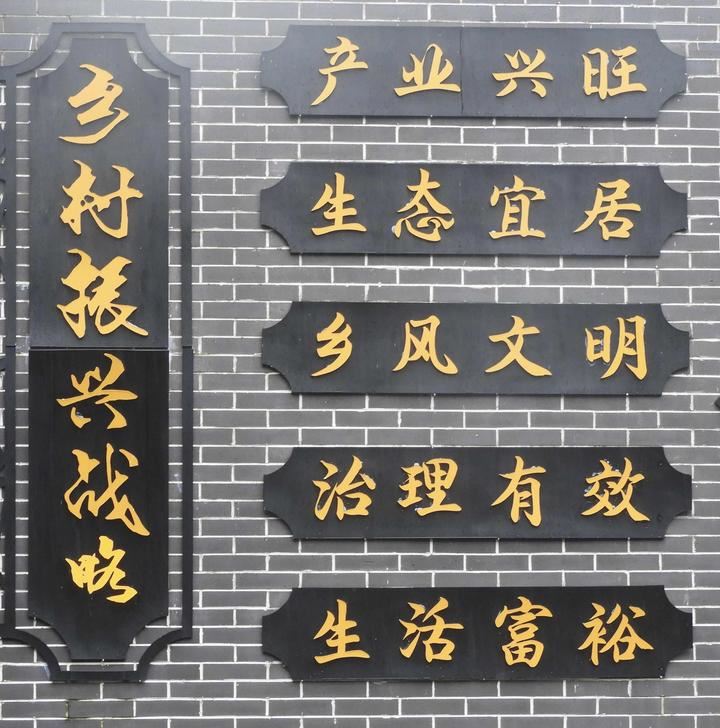 乡村振兴战略
产业兴旺
生态宜居
乡风文明
治理有效
生活富裕